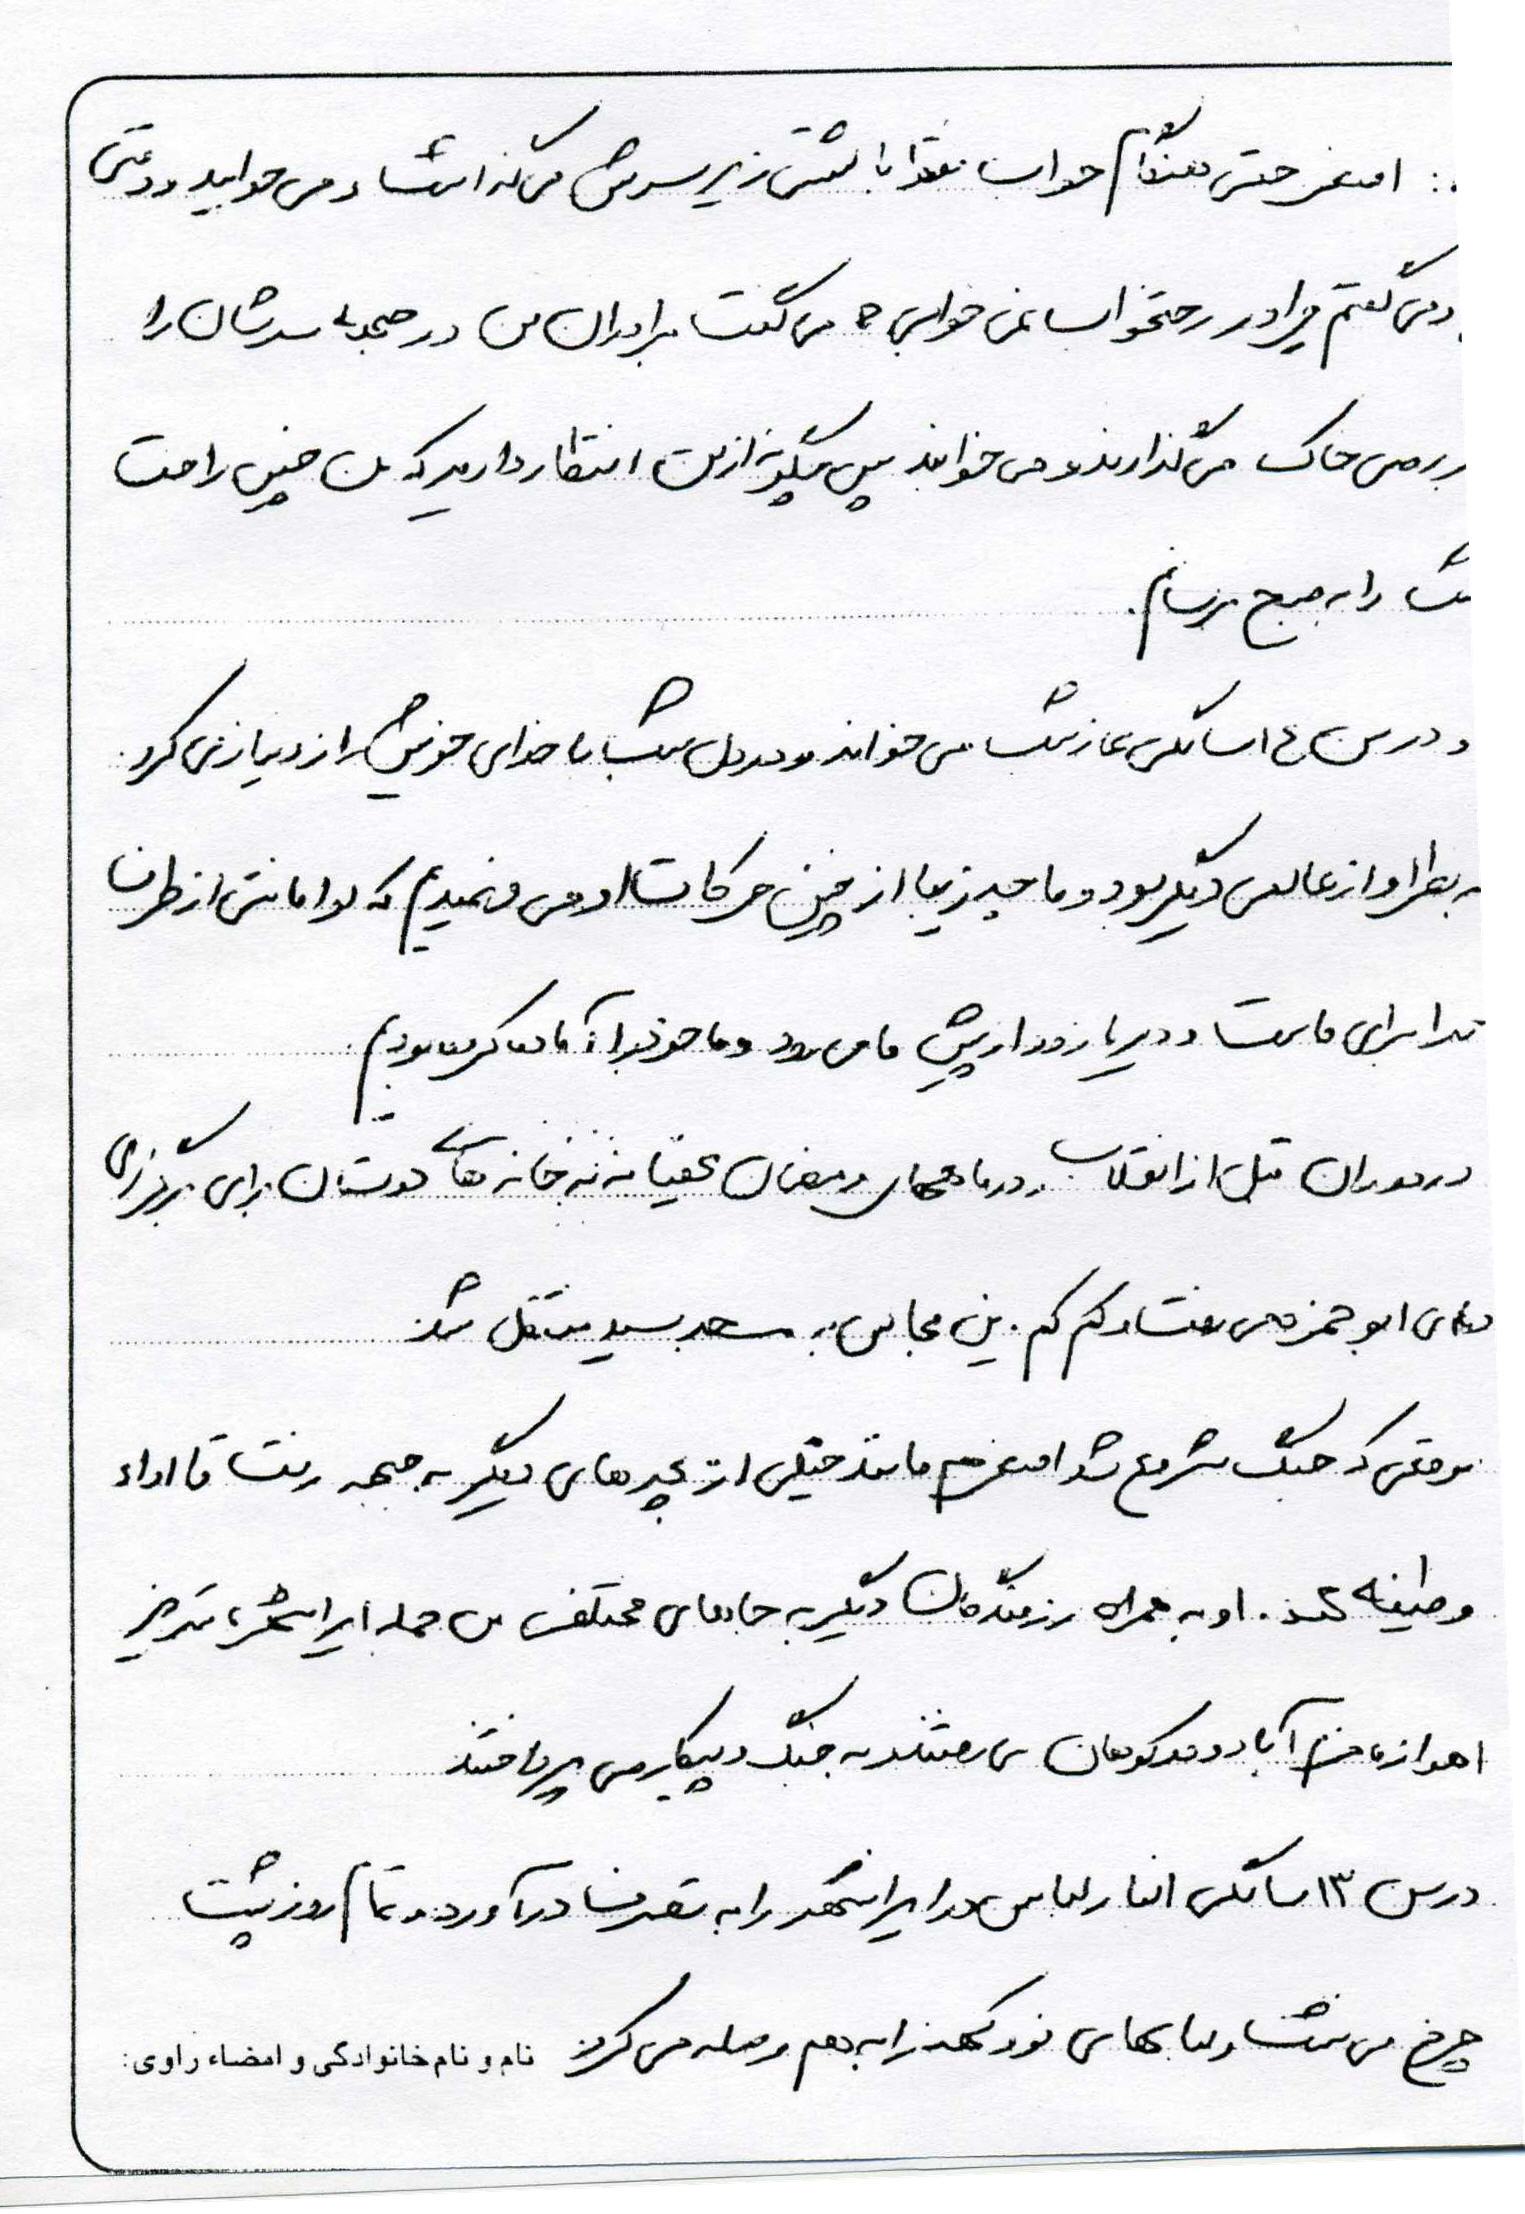 اصغر حتی هنگام خواب فقط بالشتی زیر سرش می گذاشت و می خوابید و وقتی
می گفتم چرا در رختخواب نمی خوابی ؟ می گفت برادران من در جبهه سرشان را
بر روی خاک می گذارند و می خوابند پس چگونه از من انتظار دارید که من چنین راحت
شب را به صبح برسانم .
و در سن ۱۴ سالگی نماز شب می خواند و در دل شب با خدای خویش راز و نیاز می کرد
به نظر او از عالمی دیگر بود و ما چه زیبا از چنین حرکات او می فهمیدیم که او امانتی از طرف
خدا برای ماست و دیر یا زود از پیش ما می رود و ما خود را آماده کرده بودیم .
در دوران قبل از انقلاب در ماههای رمضان مخفیانه به خانه های دوستان برای برگزاری
دعای ابوحمزه می رفت و کم کم این مجالس به مسجد سید منتقل شد
موقعی که جنگ شروع شد اصغر هم مانند خیلی از بچه های دیگر به جبهه رفت تا اداء
وظیفه کند . او به همراه رزمندگان دیگر به جاهای مختلف من جمله ایرانشهر ، تبریز
اهواز ، خرم آباد و در کوههای می رفتند به جنگ و پیکار می پرداختند
در سن ۱۳ سالگی انبار لباس در ایرانشهر را به تصرف درآورد و تمام روز پشت
چرخ می نشست و لباسهای نو و کهنه را به هم وصله می کرد
نام و نام خانوادگی و امضاء راوی: